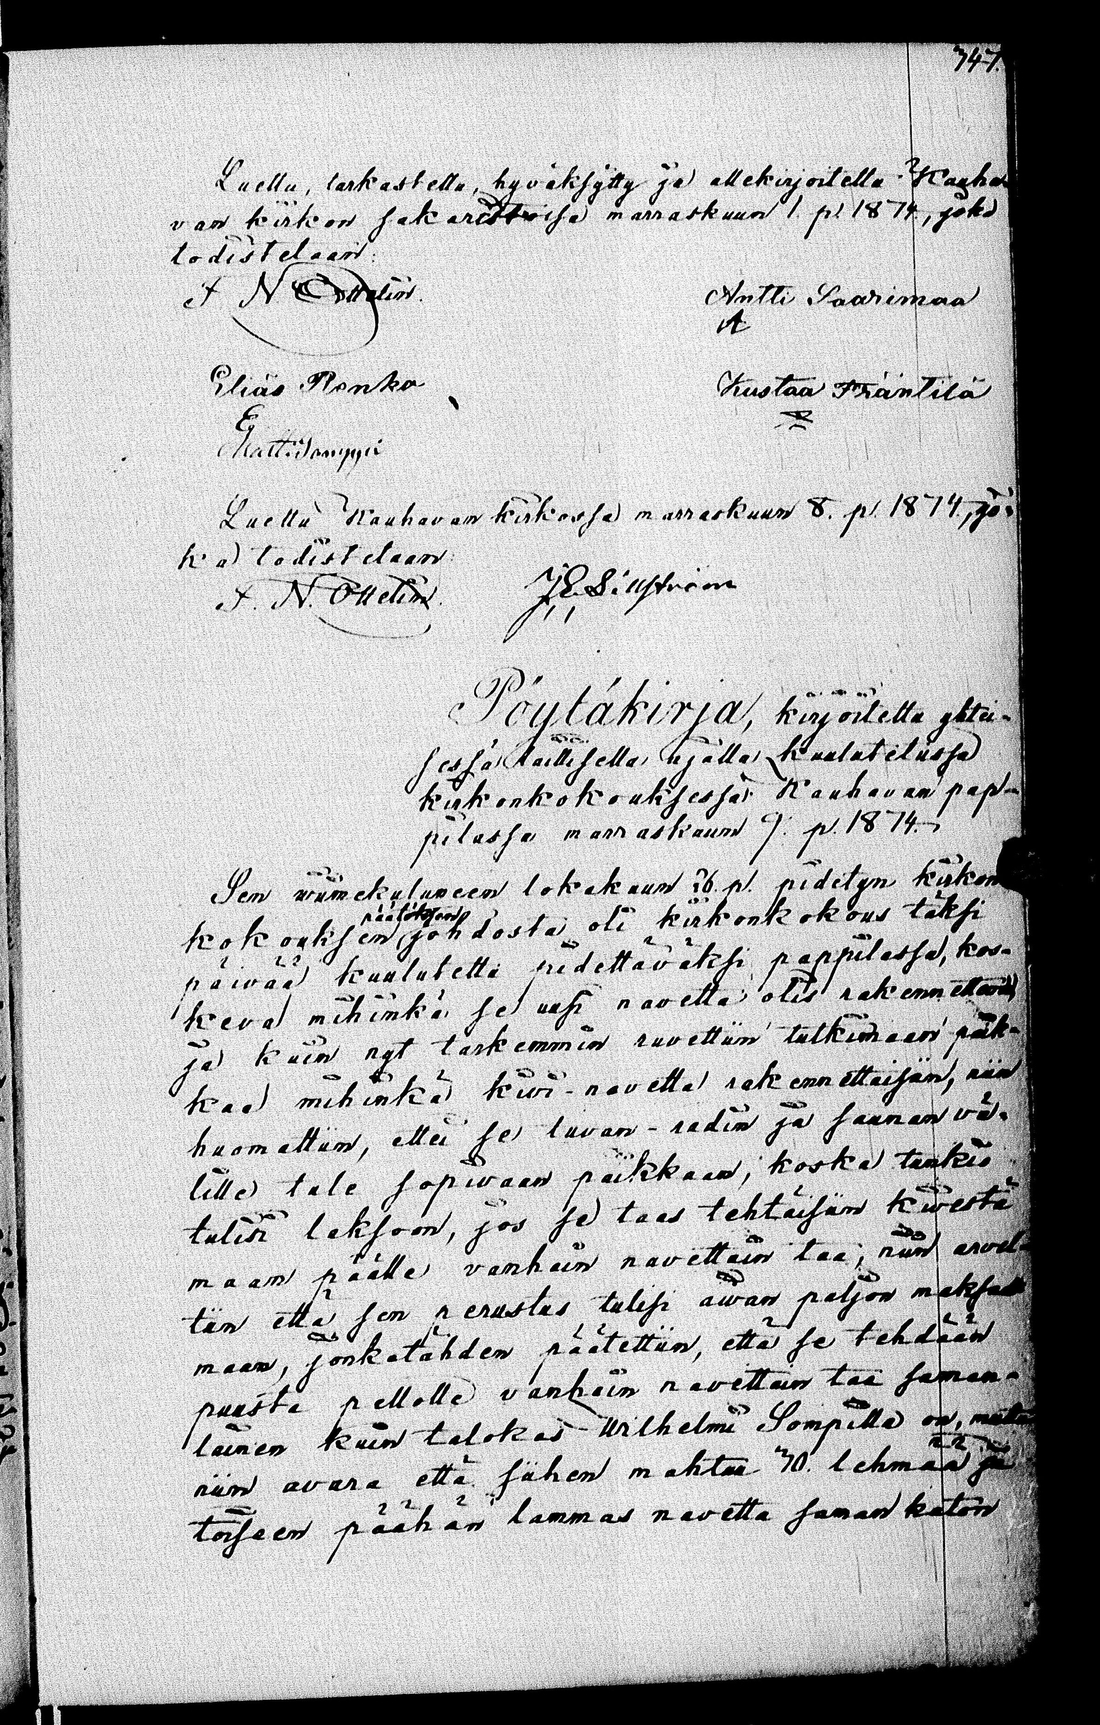 747.
Luettu, tarkastettu, hyväksytty ja allekirjoitettu Kauha-
van kirkon sakaristoisa marraskuun 1. p. 1874, joka
todistetaan:
F N Ottelin. Antti Saarimaa
A
Elias Renko Kustaa Främtilä
E
Matti
Luettu Kauhavan kirkossa marraskuun 8. p. 1874, jo-
ka todistetaan:
F. N. Ottelin. J E Sillström
Pöytäkirja, kirjoitettu yhtei-
sessä laillisella ajalla kuulutetussa
kirkonkokouksessa Kauhavan pap-
pilassa marraskuun 9. p. 1874.
Sen wiimekuluneen lokakuun 26. p. pidetyn kirkon
päätöksen
kokouksen johdosta oli kirkonkokous täksi
päivää kuulutettu pidettäväksi pappilassa, kos-
keva mihinkä se uusi navetta olis rakennettava
ja kuin nyt tarkemmin ruvettiin tutkimaan paik-
kaa mihinkä kiwi-navetta rakennettaisiin, niin
huomattiin, ettei se luvan-radin ja saunan vä-
lille tule sopiwaan paikkaan, koska tunkio
tulisi laksoon, jos se taas tehtäisiin kiwestä
maan päälle vanhain navettain taa, niin arvel-
tiin että sen perustus tulisi aiwan paljon maksa-
maan, jonkatähden päätettiin, että se tehdään
puusta pellolle vanhain navettain taa saman-
lainen kuin talokas Wilhelmi Sompilla on, mutta
niin avara että siihen mahtuu 30. lehmää ja
toiseen päähän lammas navetta saman katon